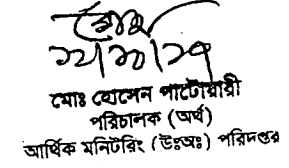 মোঃ হোসেন পাটোয়ারী
পরিচালক (অর্থ)
আর্থিক মনিটরিং (উঃঅঃ) পরিদপ্তর